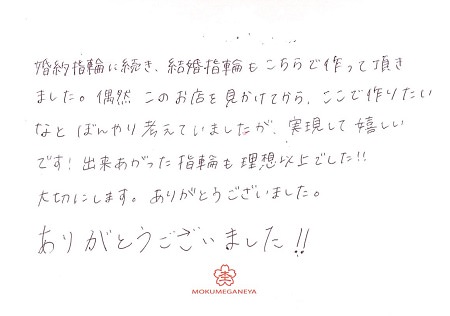 婚約指輪に続き、結婚指輪もこちらで作って頂き
ました。偶然 このお店を見かけてから、ここで作りたい
なと ぼんやり考えていましたが、実現して嬉しい
です！出来あがった指輪も理想以上でした!!
大切にします。ありがとうございました。
ありがとうございました!!
MOKUMEGANEYA